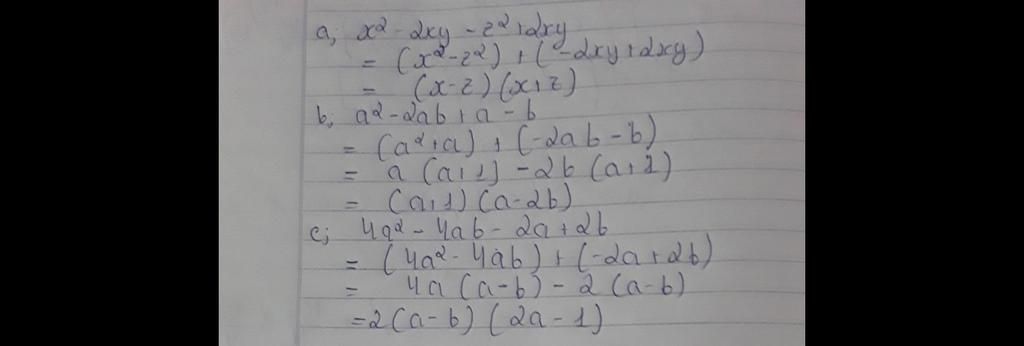 a; x² - 2xy - z² + 2xy
= (x² - z²) + (-2xy + 2xy)
= (x - z)(x + z)
b; a² - 2ab + a - b
= (a² + a) + (-2ab - b)
= a(a + 1) - 2b(a + 1)
= (a + 1)(a - 2b)
c; 4a² - 4ab - 2a + 2b
= (4a² - 4ab) + (-2a + 2b)
= 4a(a - b) - 2(a - b)
= 2(a - b)(2a - 1)